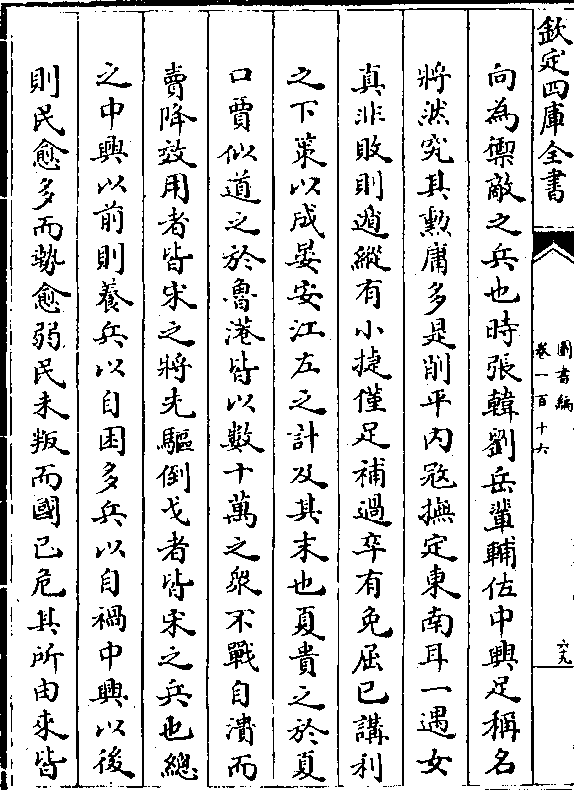 欽定四庫全書
圖書編
卷一百十六
六九
向為禦敵之兵也時張韓劉岳輩輔佐中興足稱名
將然究其勲庸多是削平内冦撫定東南耳一遇女
真非敗則遁縱有小捷僅足補過卒有免屈已講利
之下策以成晏安江左之計及其末也夏貴之於夏
口賈似道之於魯港皆以數十萬之衆不戰自潰而
賣降效用者皆宋之將先驅倒戈者皆宋之兵也總
之中興以前則養兵以自困多兵以自禍中興以後
則民愈多而勢愈弱民未叛而國已危其所由來皆